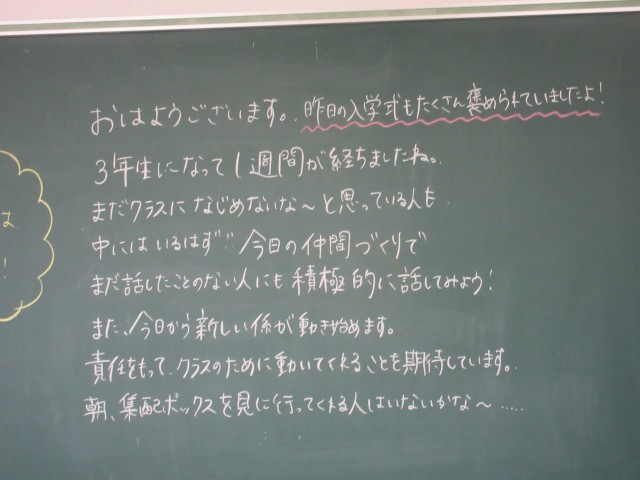 おはようございます。昨日の入学式もたくさん褒められていましたよ！
3年生になって1週間が経ちましたね。
まだクラスになじめないな〜と思っている人も
中にはいるはず… 今日の仲間づくりで
まだ話したことのない人にも積極的に話してみよう！
また、今日から新しい係が動き始めます。
責任をもって、クラスのために動いてくれることを期待しています。
朝、集配ボックスを見に行ってくれる人はいないかな〜……
は
！